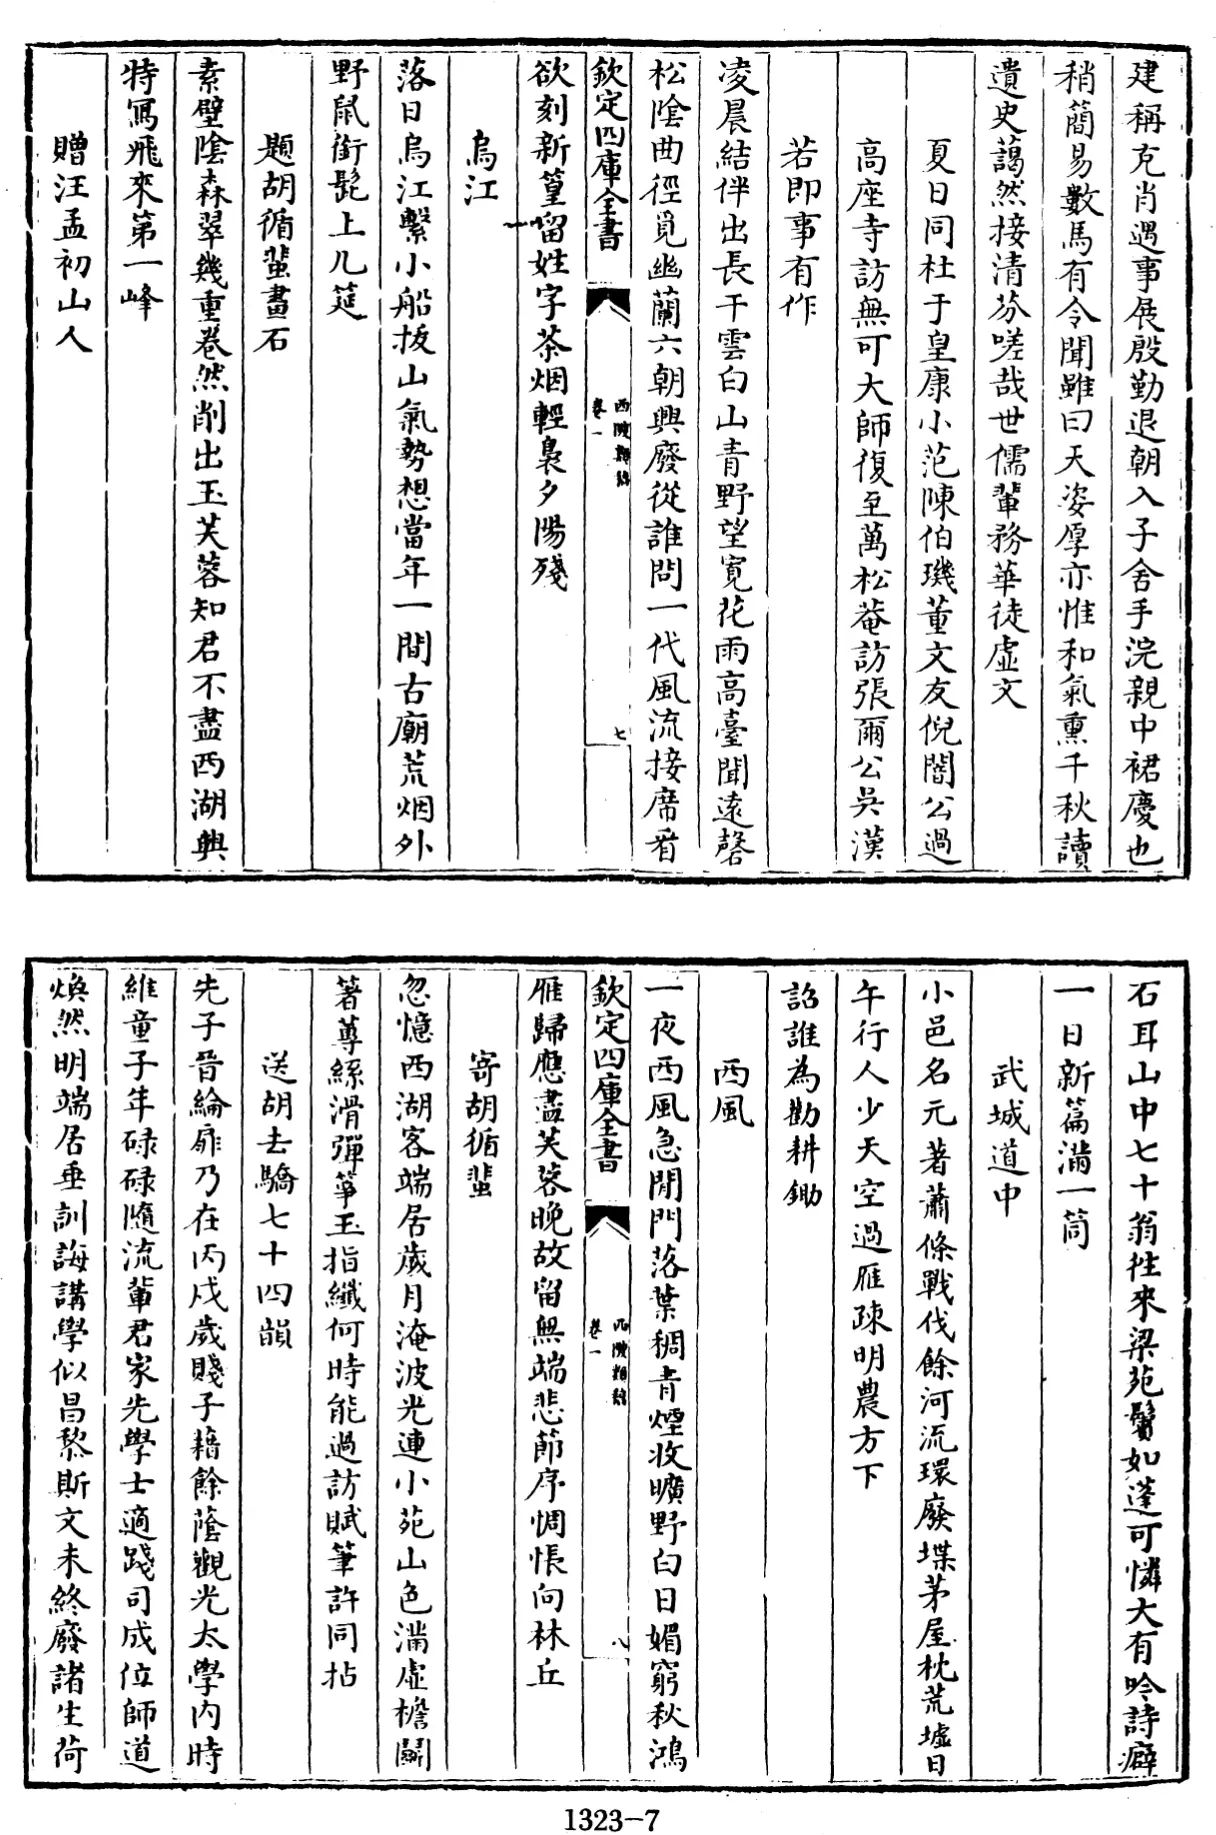 建稱克肖遇事展殷勤退朝入子舍手浣親中裙慶也
稍簡易數馬有令聞雖曰天姿厚亦惟和氣熏千秋讀
遺史藹然接清芬嗟哉世儒輩務華徒虛文
夏日同杜于皇康小范陳伯璣董文友倪闇公過
高座寺訪無可大師復至萬松菴訪張爾公吳漢
若即事有作
凌晨結伴出長干雲白山青野望寛花雨高臺聞遠磬
松陰曲徑覓幽蘭六朝興廢從誰問一代風流接席看
欽定四庫全書
西陂類稿
卷一
七
欲刻新篁留姓字茶烟輕裊夕陽殘
烏江
落日烏江繫小船拔山氣勢想當年一間古廟荒烟外
野鼠銜髭上几筵
題胡循蜚畫石
素壁陰森翠幾重卷然削出玉芙蓉知君不盡西湖興
特寫飛來第一峰
贈汪孟初山人
石耳山中七十翁徃來梁苑鬢如蓬可憐大有吟詩癖
一日新篇滿一筒
武城道中
小邑名元著蕭條戰伐餘河流環廢堞茅屋枕荒墟日
午行人少天空過雁疎明農方下
詔誰為勸耕鋤
西風
一夜西風急閒門落葉稠青煙收曠野白日媚窮秋鴻
欽定四庫全書
西陂類稿
卷一
八
雁歸應盡芙蓉晚故留無端悲節序惆悵向林丘
寄胡循蜚
忽憶西湖客端居歲月淹波光連小苑山色滿虛檐鬬
箸蓴絲滑彈箏玉指纖何時能過訪賦筆許同拈
送胡去驕七十四韻
先子晉綸扉乃在丙戌歲賤子藉餘蔭觀光太學内時
維童子年碌碌隨流輩君家先學士適踐司成位師道
煥然明端居垂訓誨講學似昌黎斯文未終廢諸生荷
1323-7